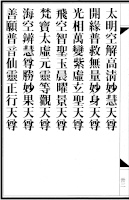 太明空解高清妙慧天尊
開緣普救無量妙身天尊
光相萬變紫虛玄聖天尊
飛空智聖玉晨曜景天尊
梵寶太虛元靈等觀天尊
海空辯慧尊勝妙果天尊
善願普音仙靈正行天尊